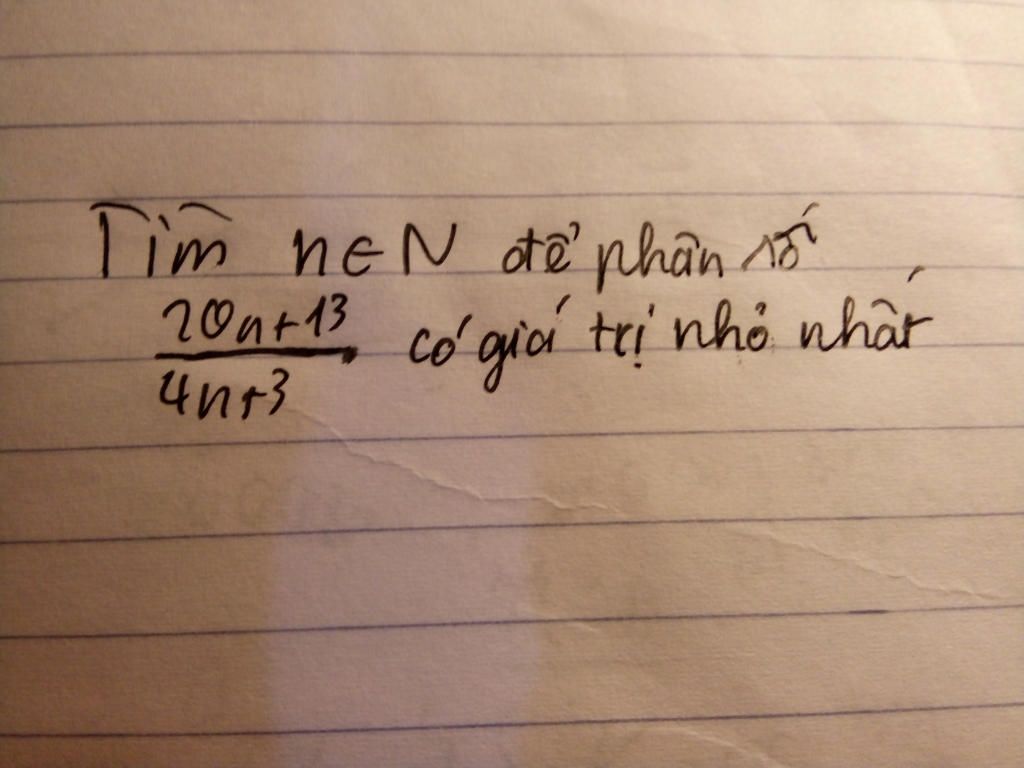 Tìm n∈N để phân số
20n+13
4n+3
có giá trị nhỏ nhất